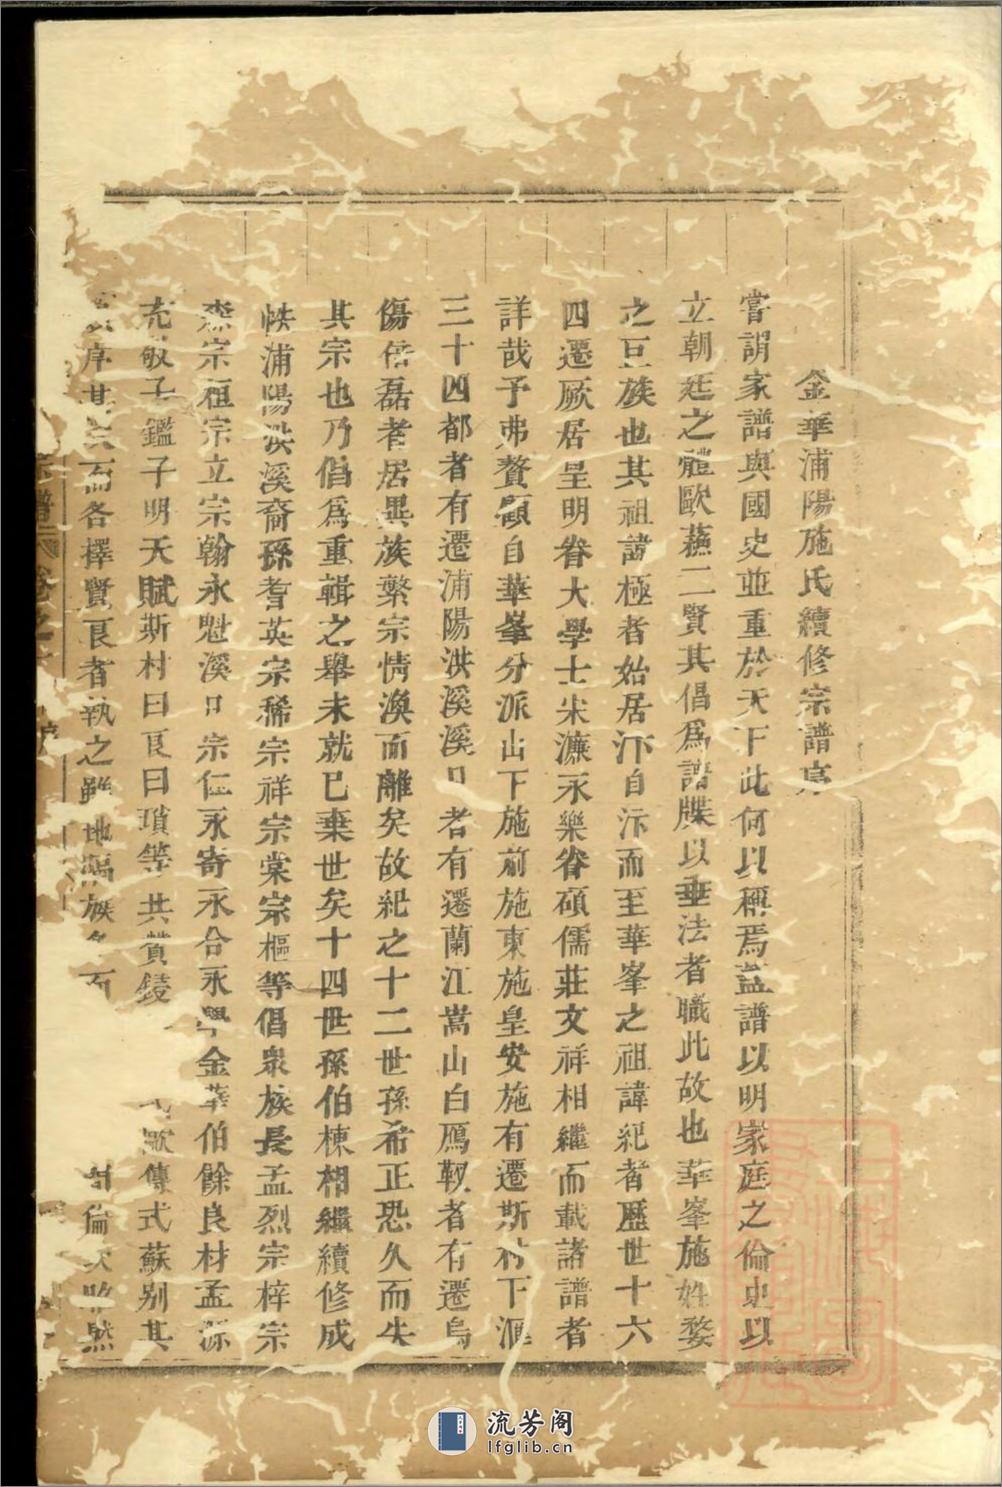 金華浦陽施氏續修宗譜序
嘗謂家譜與國史並重於天下此何以稱焉蓋譜以明家庭之倫史以
立朝廷之體歐蘓二賢其倡爲譜牒以垂法者職此故也華峯施姓婺
之巨族也其祖諱極者始居汴自汴而至華峯之祖諱紀者歷世十六
四遷厥居呈明眷大學士宋濂永樂眷碩儒莊文祥相繼而載諸譜者
詳哉予弗贅顧自華峯分派山下施前施東施皇安施有遷斯村下滙
三十四都者有遷浦陽洪溪溪口者有遷蘭江嵩山白鴈靫者有遷烏
傷倍磊者居異族繁宗情渙而離矣故紀之十二世孫希正恐久而失
其宗也乃倡爲重輯之舉未就已棄世矣十四世孫伯棟相繼續修成
帙浦陽洪溪裔孫耆英宗稀宗祥宗棠宗樞等倡衆族長孟烈宗梓宗
森宗祖宗立宗翰永魁溪口宗仁永寄永合永學金華伯餘良材孟源
充敬子鑑子明天賦斯村曰良曰瑣等共贊鋟 歐傳式蘇别其
序其 而各擇賢良者執之雖地隔族 倫次昭然
宗譜 卷之 序
流芳阁
lfglib.cn